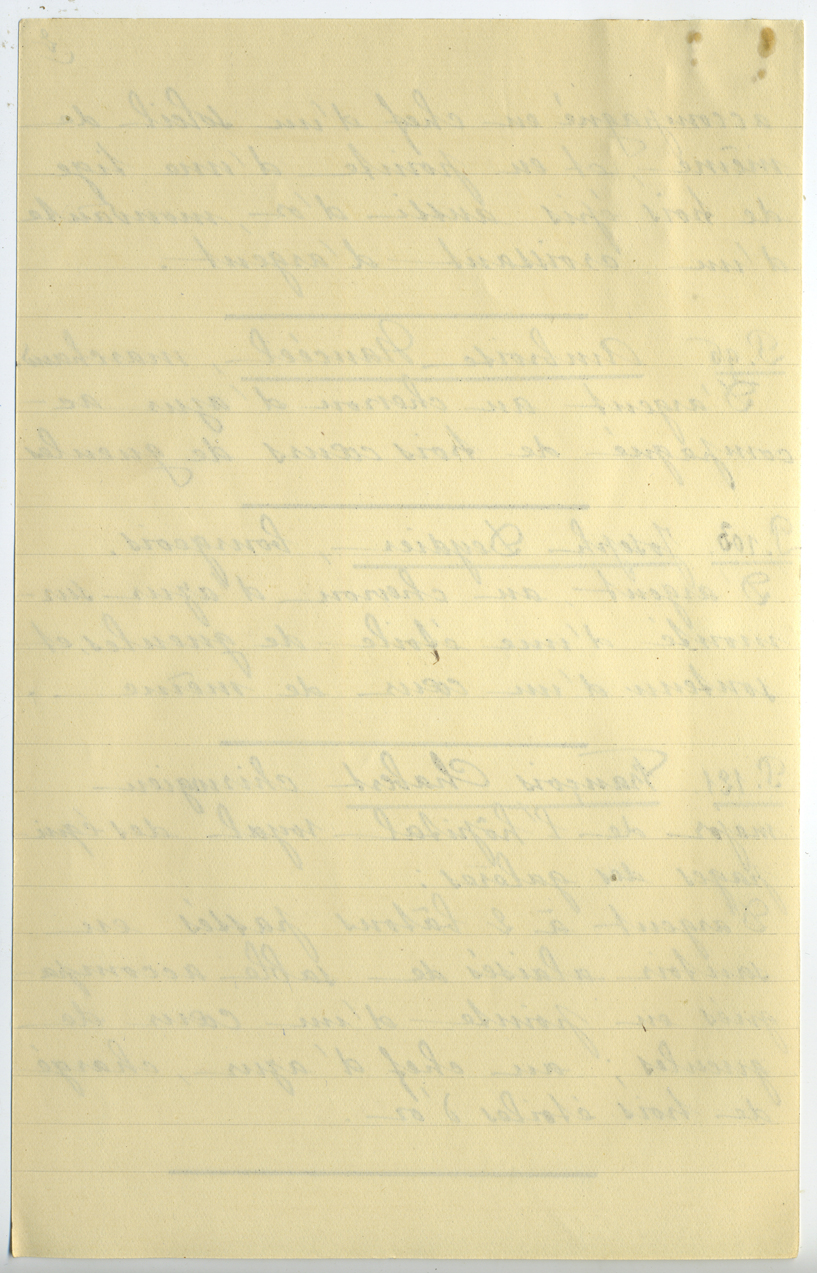 accompagné en chef d'un soleil de
même, et en pointe d'une tige
de trois épis aussi d'or, mouvante
d'un croissant d'argent.
P. 45 Ambroise, marchand
D'argent au chevron d'azur ac-
compagné de trois cœurs de gueules
Joseph Deydier, bourgeois.
D'argent au chevron d'azur sur-
monté d'une étoile de gueules et
soutenu d'un cœur de même.
P. 121 François Chabert chirurgien
major de l'hôpital royal des équi
pages des galères;
D'argent à 2 bâtons passés en
sautoir alaisés de sable accompa
gnés en pointe d'un cœur de
gueules; au chef d'azur, chargé
de trois étoiles d'or.